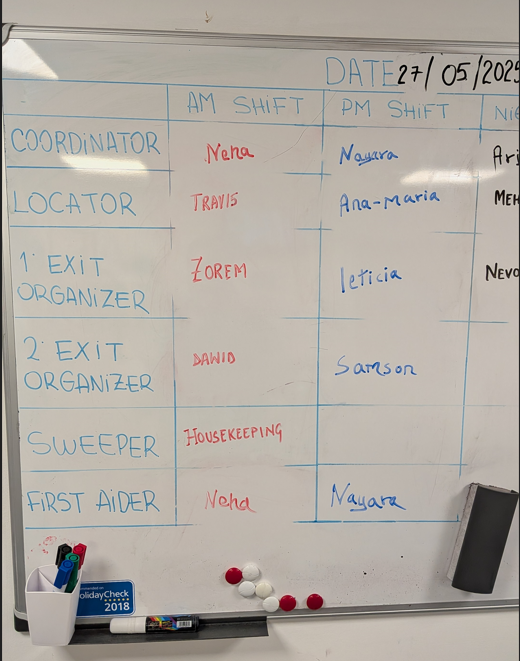 DATE 27/05/2025
AM SHIFT PM SHIFT
COORDINATOR Neha Nayara
LOCATOR TRAVIS Ana-Maria
1 EXIT ORGANIZER ZOREM leticia
2 EXIT ORGANIZER DAWID Samson
SWEEPER HOUSEKEEPING
FIRST AIDER Neha Nayara
HolidayCheck
2018